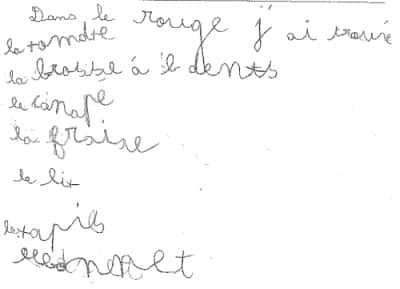 Dans le rouge j'ai trouvé
la tomate
la brosse à dents
le canapé
la fraise
le lit
le tapis